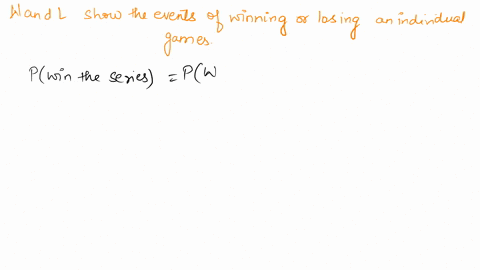 W and L show the events of winning or losing an individual
games.
P(win the series) = P(W